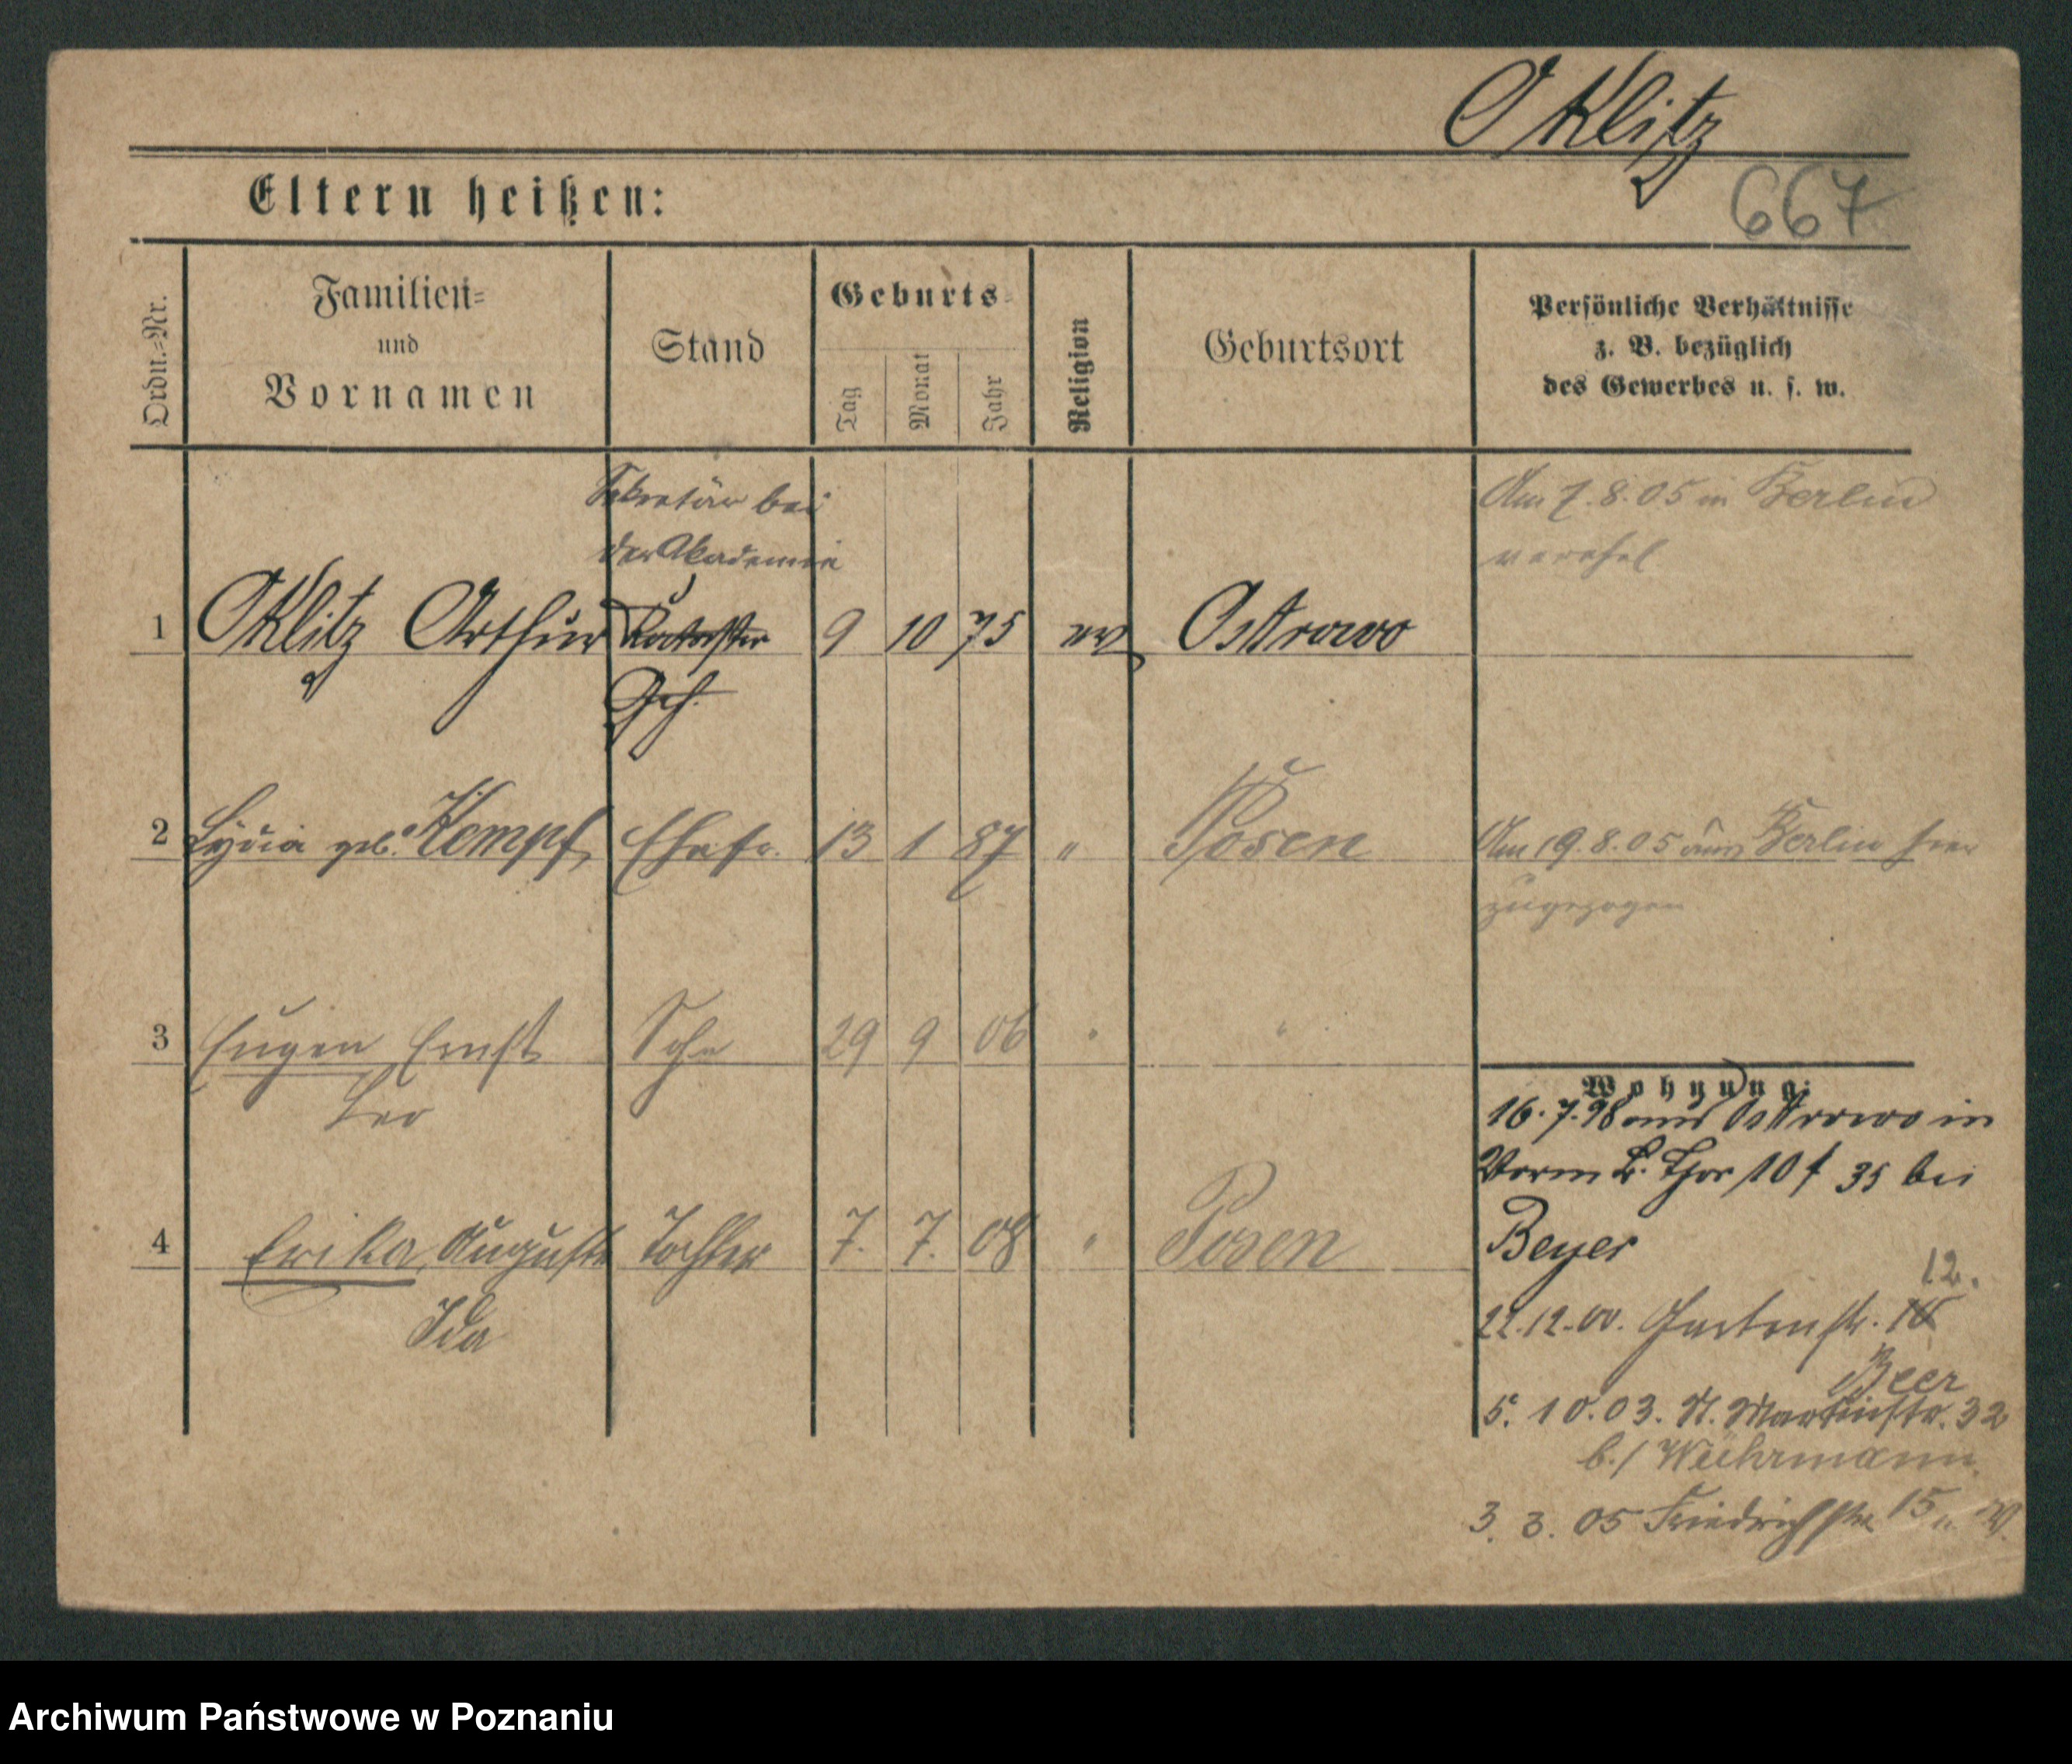 Oklitz
667
Eltern heißen:
Ordn.=Nr.
Familien=
und
Vornamen
Stand
Geburts=
Tag
Monat
Jahr
Religion
Geburtsort
Persönliche Verhältnisse
z. B. bezüglich
des Gewerbes u. s. w.
Sekretär bei
der Akademie
Am 7.8.05 in Berlin
verehel
1 Oklitz Arthur Kataster 9 10 75 ev Ostrowo
Geh.
2 Lydia geb. Kempf Ehefr. 13 1 87 " Posen Am 19.8.05 aus Berlin hier
zugezogen
3 Eugen Ernst Sohn 29 9 06 " "
Leo
Wohnung:
16.7.98 aus Ostrowo in
Vorm B. Thor 10 f 35 bei
4 Erika Auguste Tochter 7. 7. 08 " Posen
Ida
Beyer
12.
22.12.00. Gartenstr. 16
Beer
5. 10.03. St. Martinstr. 32
b./ Wührmann
3. 3. 05 Friedrichstr 15
Archiwum Państwowe w Poznaniu